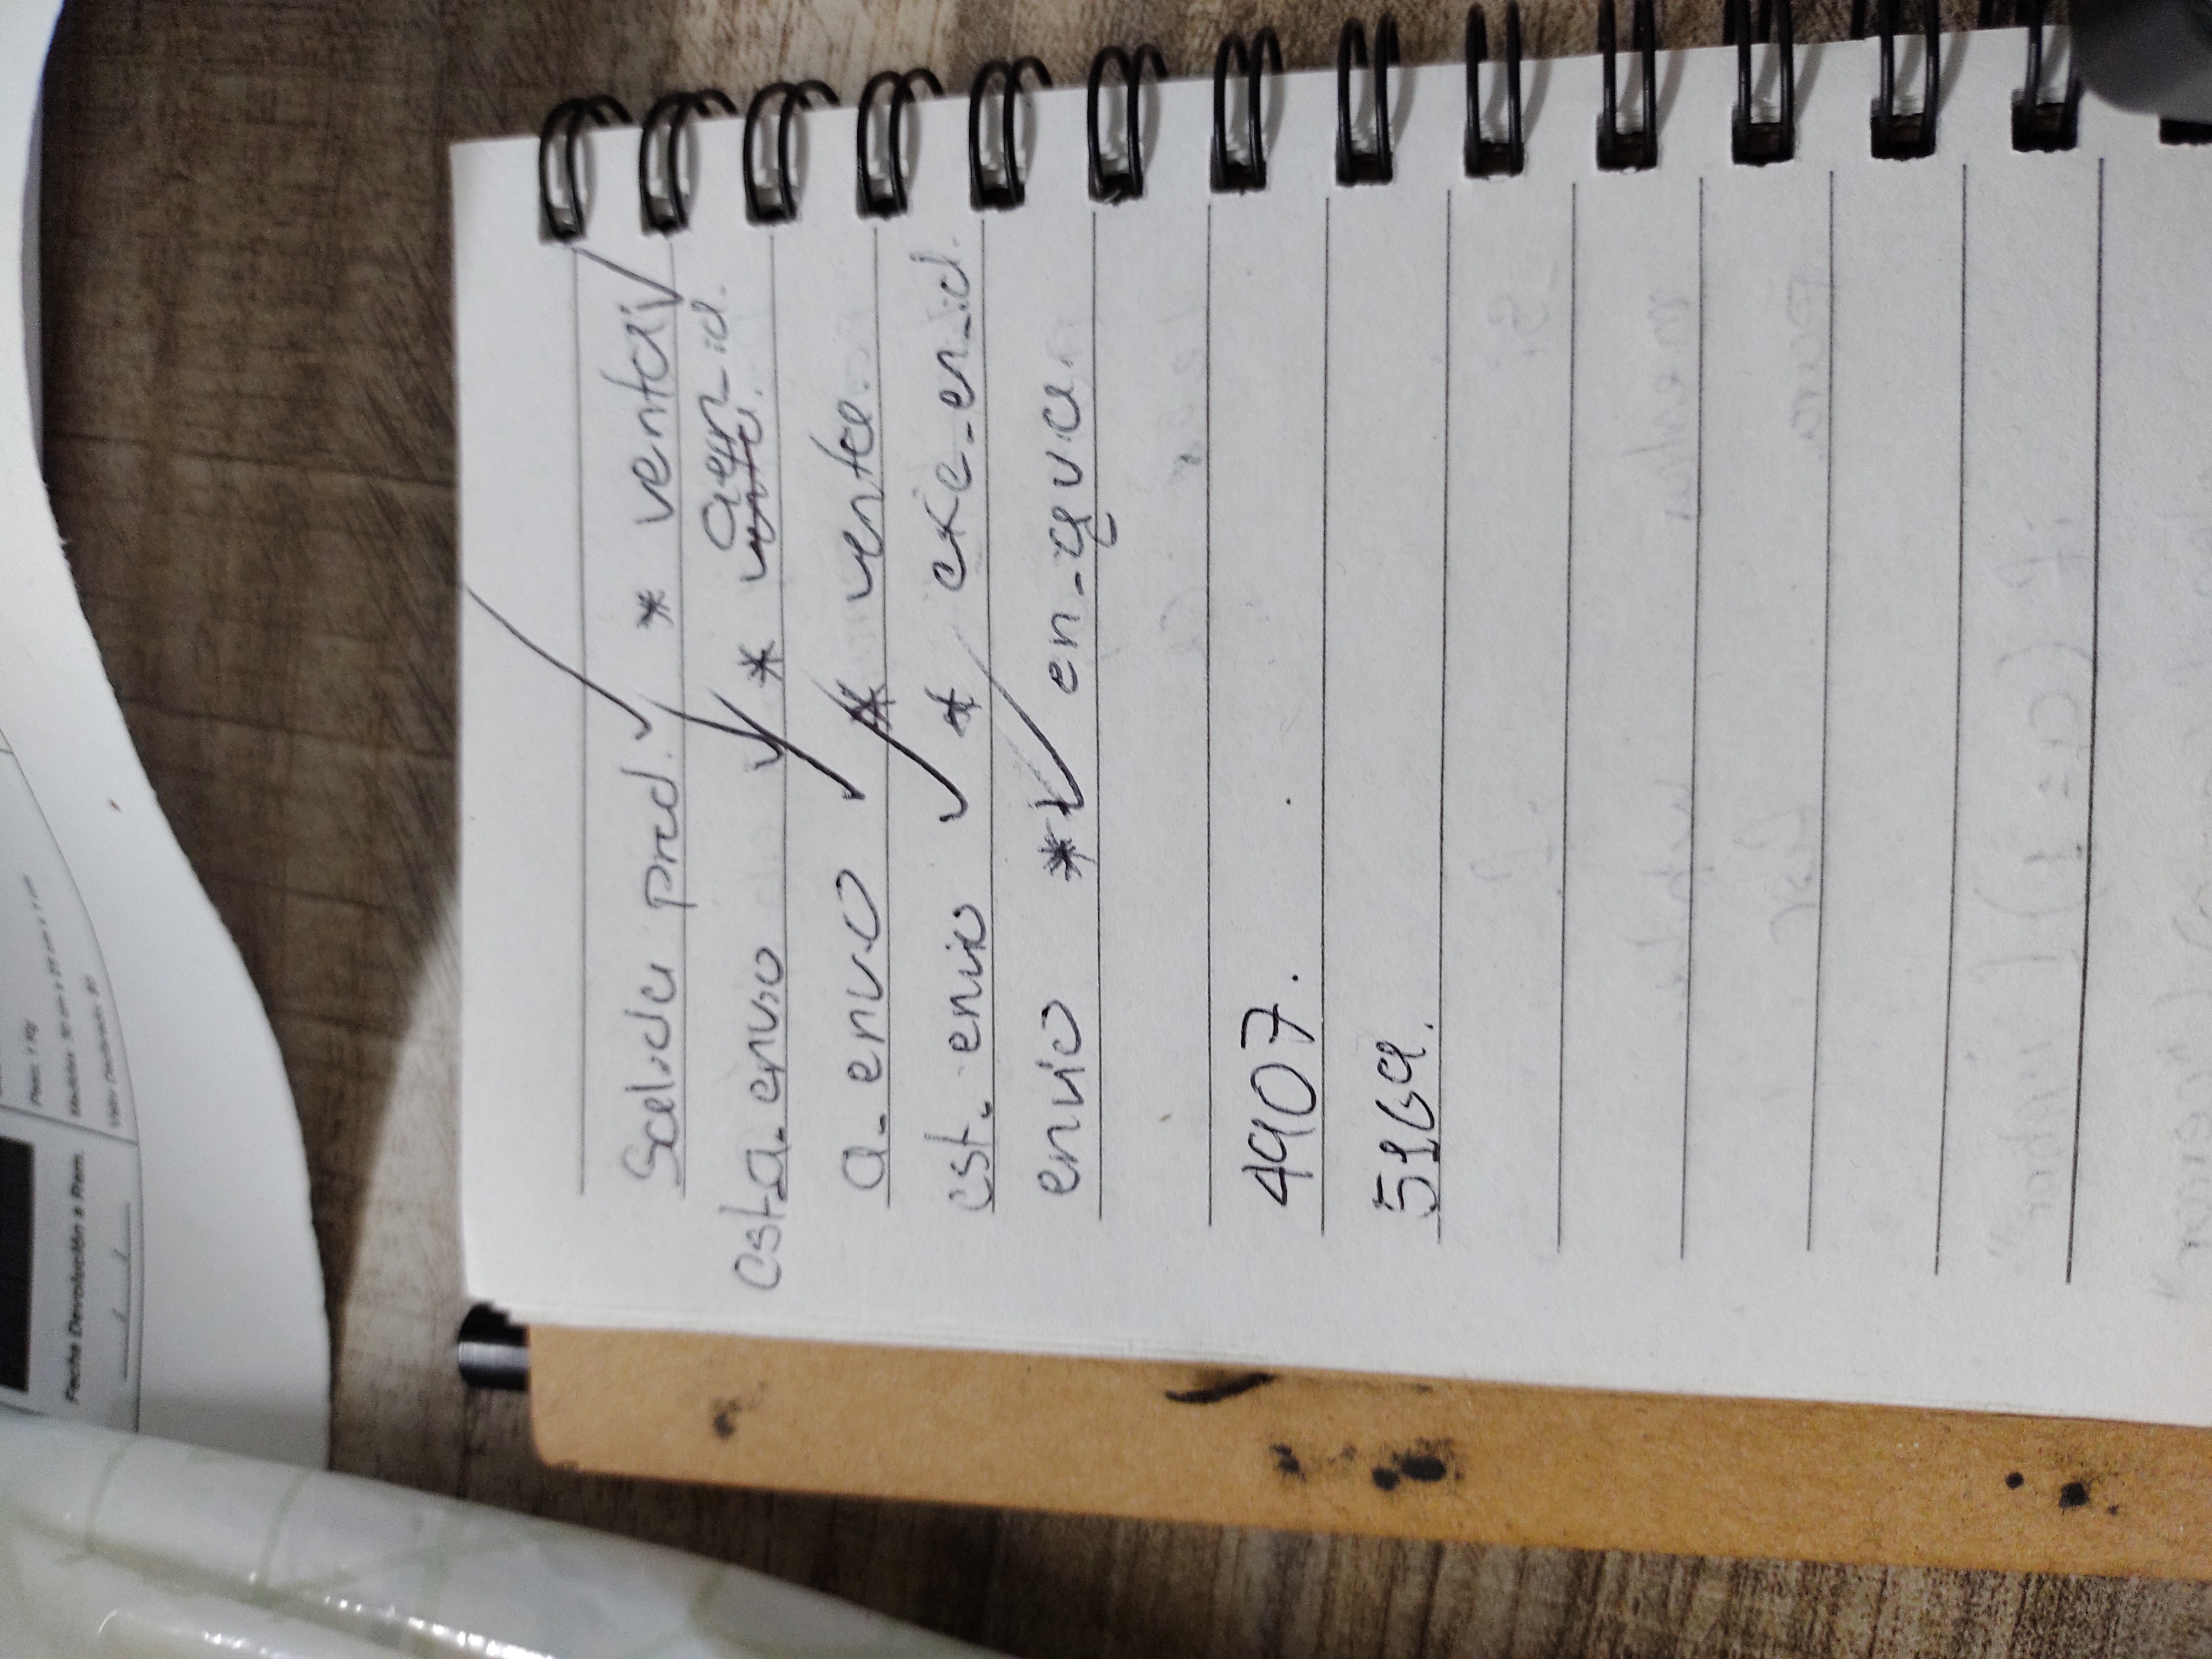 Peso: 1 Kg
Fecha Devolución a Rem.
Medidas: 30 cm x 25 cm x 1 cm
/ /
Valor Declarado: $0
Salida prod. ✓ * venta ✓
aen_id.
est_a_envio ✓ * venta.
a_envio ✓ * venta.
est_envio ✓ * exe_en_id.
envio * ✓ en_gva.
4907.
5169.